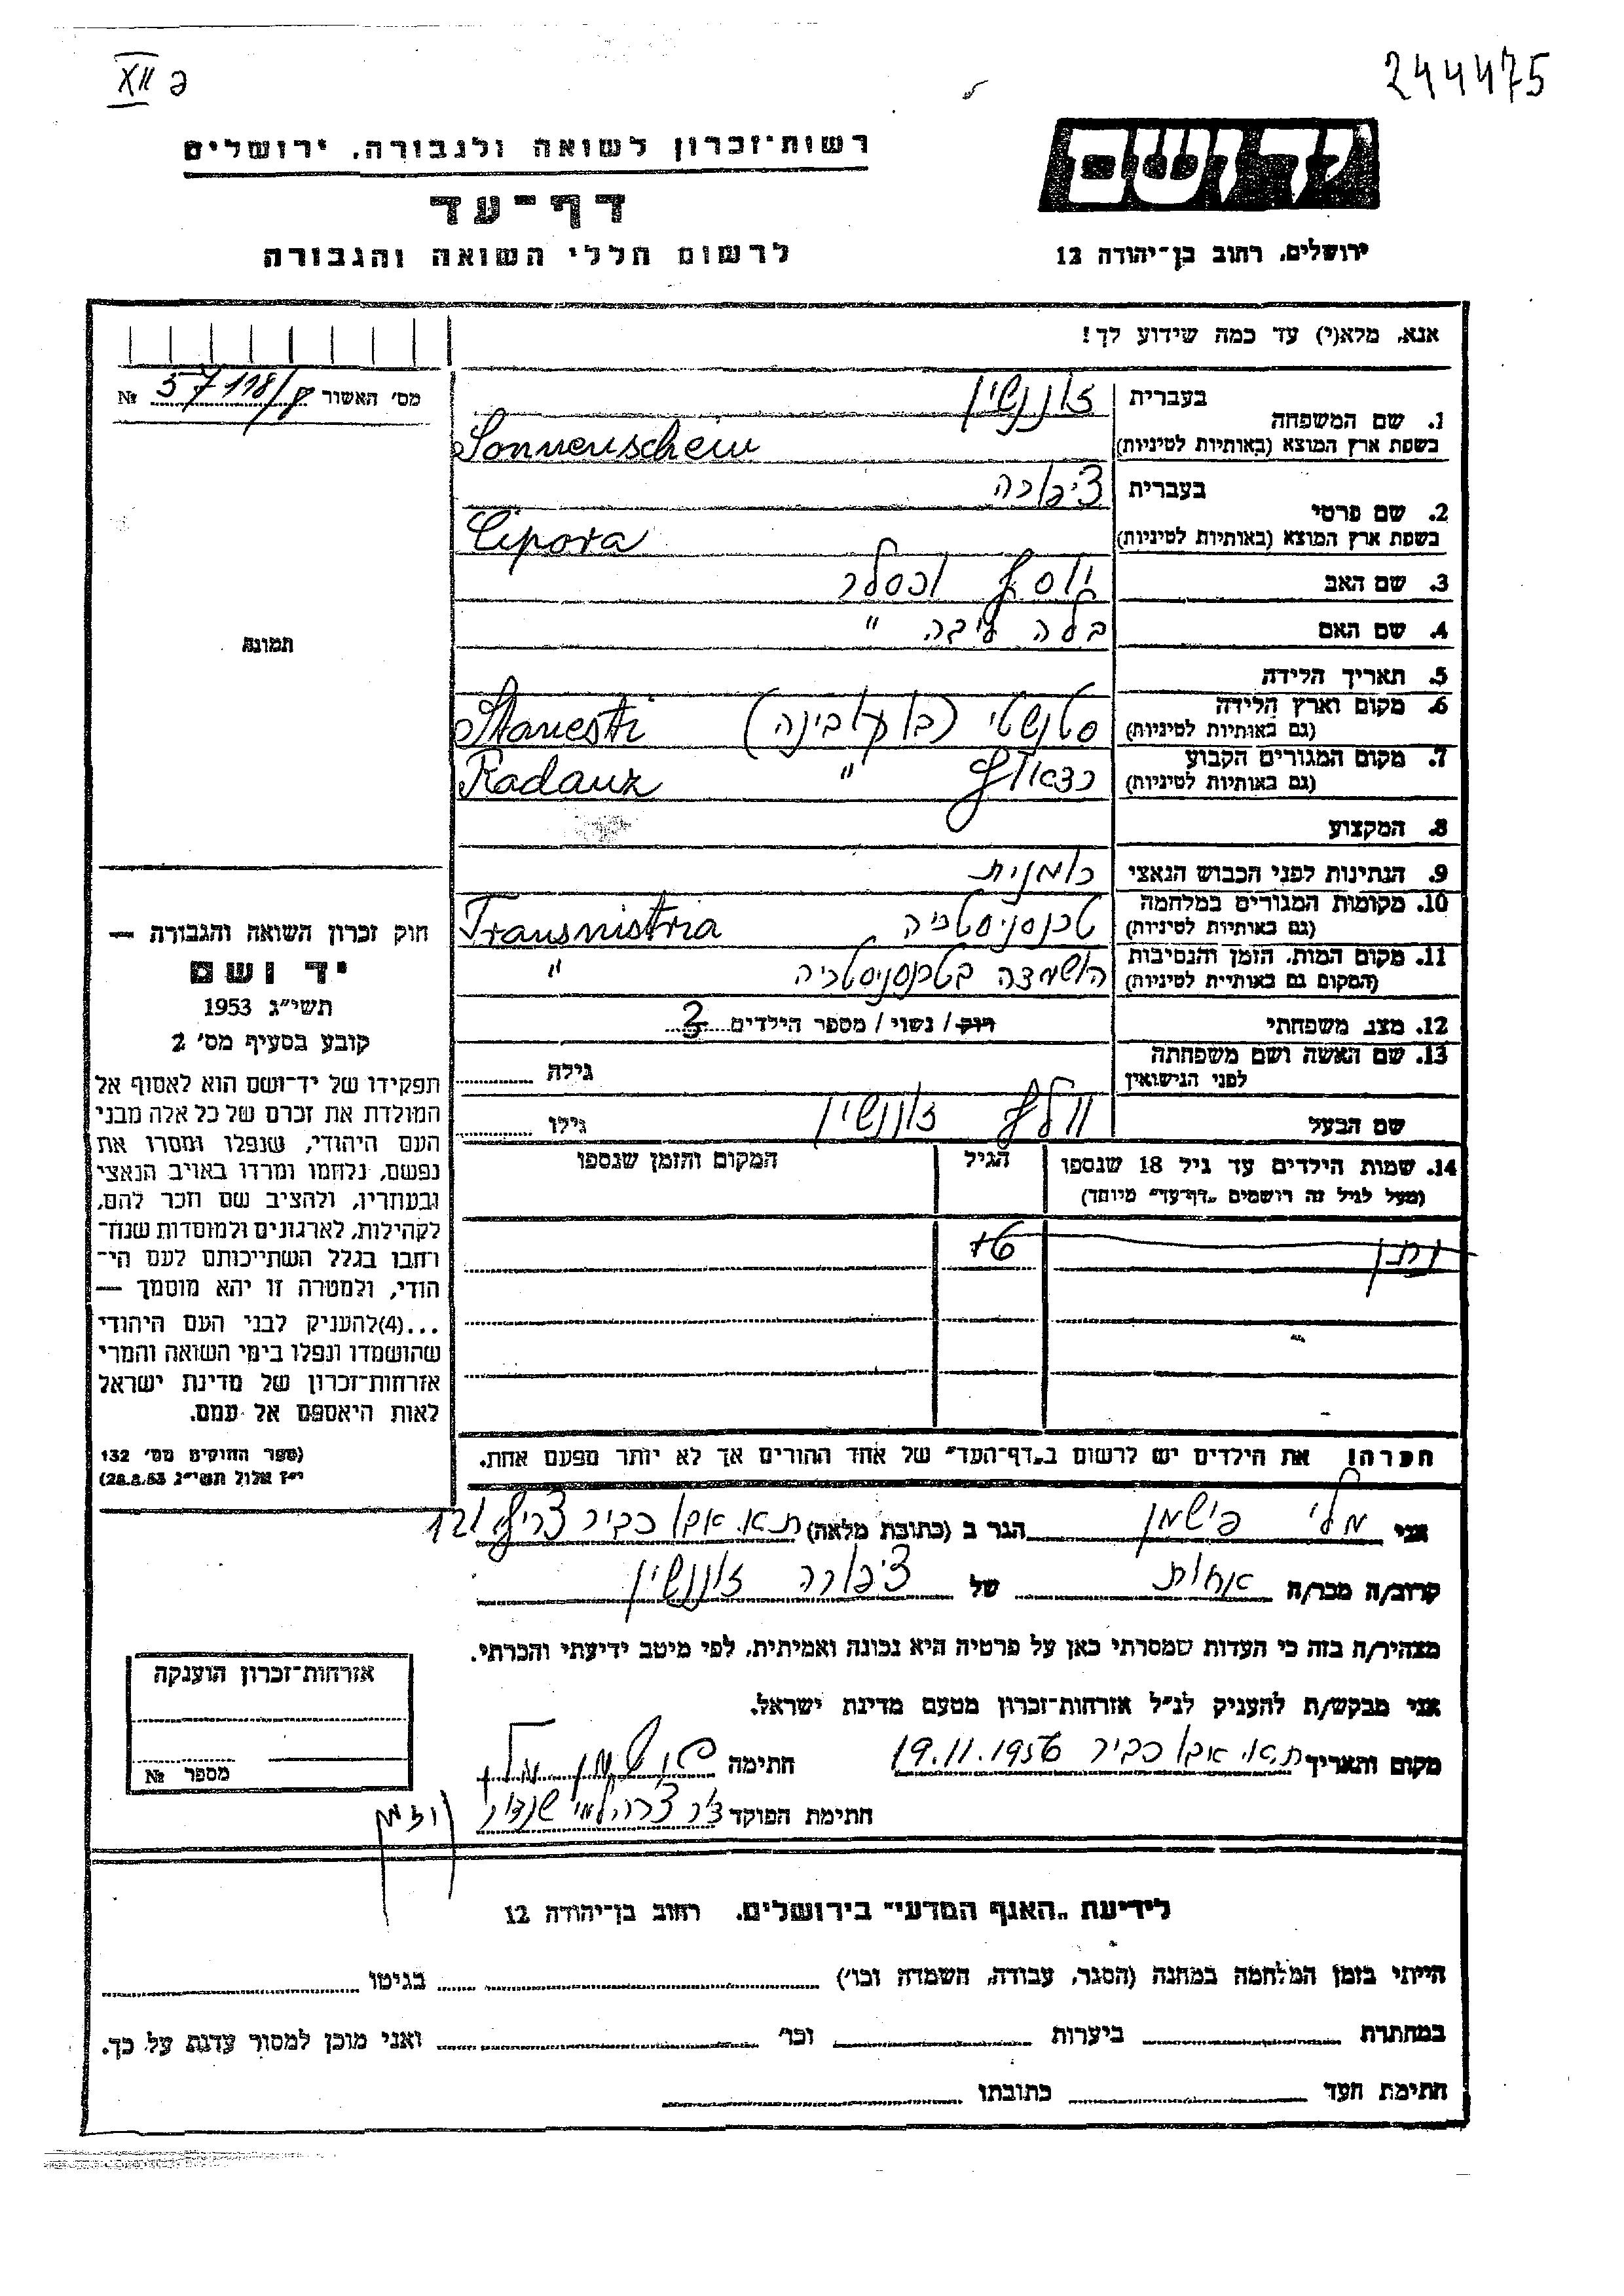 244475
XII פ
יד ושם
ירושלים, רחוב בן־יהודה 12
רשות־זכרון לשואה ולגבורה, ירושלים
דף־עד
לרשום חללי השואה והגבורה
אנא, מלא(י) עד כמה שידוע לך!
מס' האשור 57118/ № 
1. שם המשפחה
בעברית זוננשין
בשפת ארץ המוצא (באותיות לטיניות) Sonnenschein
2. שם פרטי
בעברית ציפורה
בשפת ארץ המוצא (באותיות לטיניות) Cipora
3. שם האב יוסף
4. שם האם בלה ליבה "
5. תאריך הלידה
6. מקום וארץ הלידה סטנשטי (בוקובינה) Stanesti
(גם באותיות לטיניות)
7. מקום המגורים הקבוע רצאוץ " Radauz
(גם באותיות לטיניות)
8. המקצוע
9. הנתינות לפני הכבוש הנאצי רומנית
10. מקומות המגורים במלחמה טרנסניסטריה Transnistria
(גם באותיות לטיניות)
11. מקום המות, הזמן והנסיבות הושמדה בטרנסניסטריה "
(המקום גם באותיות לטיניות)
12. מצב משפחתי רוק / נשוי / מספר הילדים
13. שם האשה ושם משפחתה
לפני הנישואין גילה
שם הבעל וולף זוננשין גילו
14. שמות הילדים עד גיל 18 שנספו הגיל המקום והזמן שנספו
(מעל לגיל זה רושמים „דף־עד" מיוחד)
נתן
הכרהו את הילדים יש לרשום ב„דף־העד" של אחד ההורים אך לא יותר מפעם אחת.
תמונה
חוק זכרון השואה והגבורה —
יד ושם
תשי"ג 1953
קובע בסעיף מס' 2
תפקידו של יד־ושם הוא לאסוף אל
המולדת את זכרם של כל אלה מבני
העם היהודי, שנפלו ומסרו את
נפשם, נלחמו ומרדו באויב הנאצי
ובעוזריו, ולהציב שם וזכר להם,
לקהילות, לארגונים ולמוסדות שנח־
רחבו בגלל השתייכותם לעם הי־
הודי, ולמטרה זו יהא מוסמך —
...(4) להעניק לבני העם היהודי
שהושמדו ונפלו בימי השואה והמרי
אזרחות־זכרון של מדינת ישראל
לאות היאספם אל עמם.
(ספר החוקים מס' 132
י"ז אלול תשי"ג 28.8.53)
אני מלי פישמן הגר ב (כתובת מלאה) ת.א. אבו כביר צריף 121
קרוב/ה מכר/ה אחות של ציפורה זוננשין
מצהיר/ה בזה כי העדות שמסרתי כאן על פרטיה היא נכונה ואמיתית, לפי מיטב ידיעתי והכרתי.
אני מבקש/ת להעניק לנ"ל אזרחות־זכרון מטעם מדינת ישראל.
מקום ותאריך ת.א. אבו כביר 19.11.1956 חתימה פישמן מלי
חתימת הפוקד
אזרחות־זכרון הוענקה
מספר №
לידיעת „האגף המדעי" בירושלים, רחוב בן־יהודה 12
הייתי בזמן המלחמה במחנה (הסגר, עבודה, השמדה וכו') בגיטו
במחתרת ביערות וכו' ואני מוכן למסור עדות על כך.
חתימת העד כתובתו